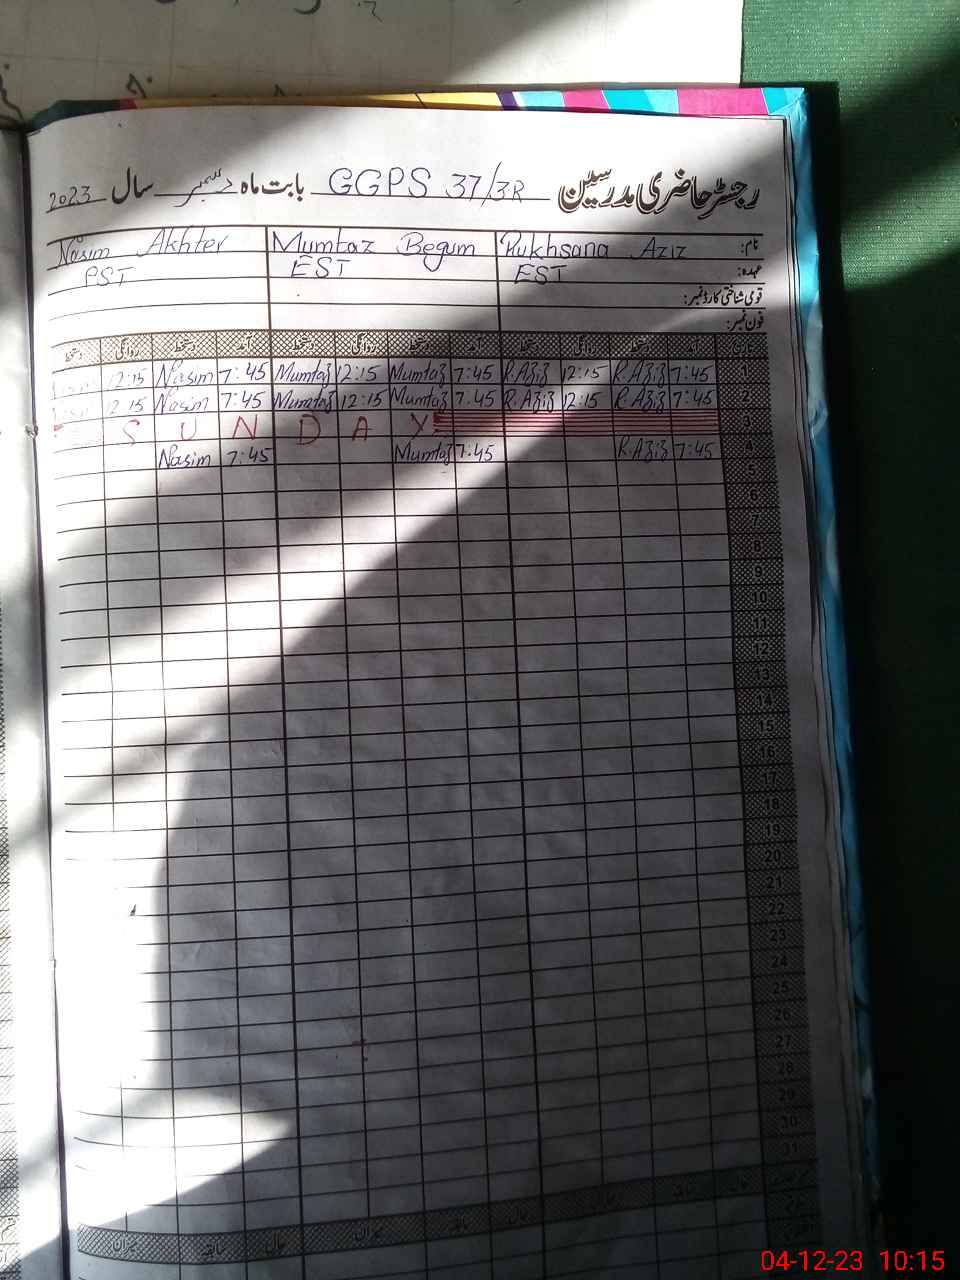 رجسٹر حاضری مدرسین GGPS 37/3R بابت ماہ دسمبر سال 2023
نام: Rukhsana Aziz Mumtaz Begum Nasim Akhter
عہدہ: EST EST PST
قومی شناختی کارڈ نمبر:
فون نمبر:
تاریخ آمد دستخط روانگی دستخط آمد دستخط روانگی دستخط آمد دستخط روانگی دستخط
1 7:45 R.Aziz 12:15 R.Aziz 7:45 Mumtaz 12:15 Mumtaz 7:45 Nasim 12:15
2 7:45 R.Aziz 12:15 R.Aziz 7:45 Mumtaz 12:15 Mumtaz 7:45 Nasim 12:15
3 SUNDAY
4 7:45 R.Aziz 7:45 Mumtaz 7:45 Nasim
5
6
7
8
9
10
11
12
13
14
15
16
17
18
19
20
21
22
23
24
25
26
27
28
29
30
31
حال سابقہ میزان حال سابقہ میزان حال سابقہ میزان
04-12-23 10:15